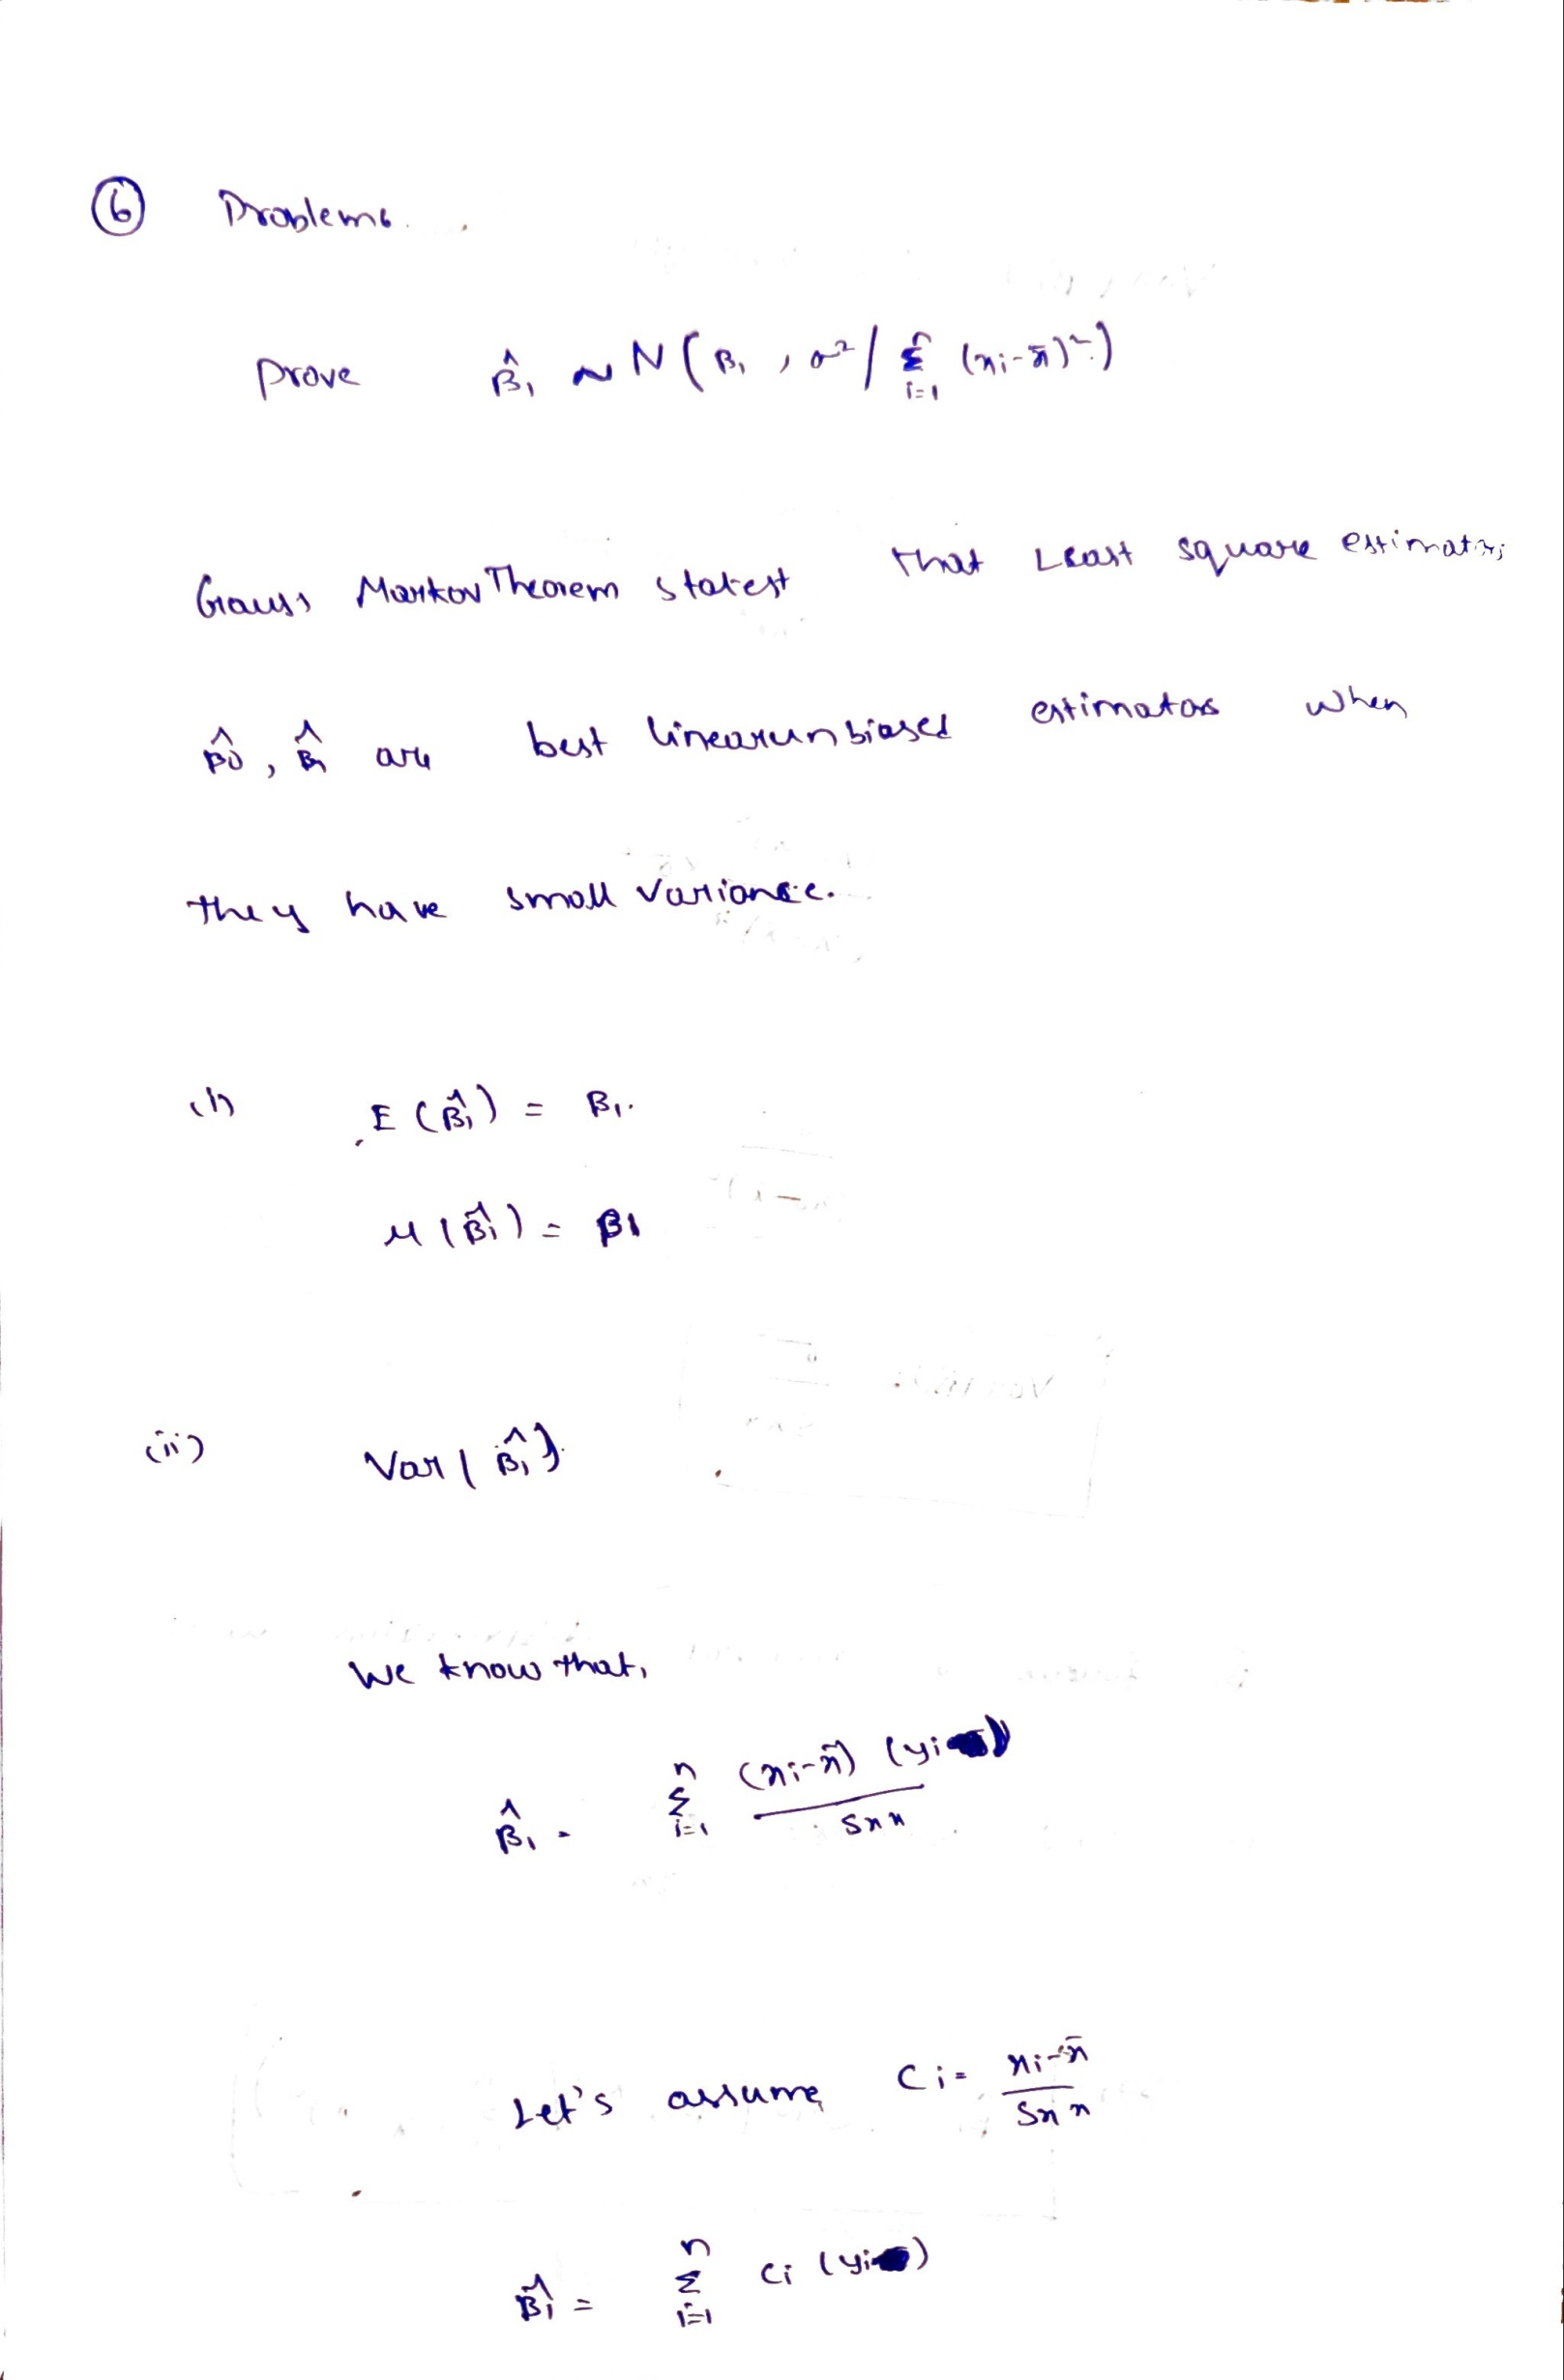 ⑥ Problems.
Prove β̂₁ ~ N(β₁, σ²/ Σⁿᵢ₌₁ (xi-x̄)²)
Gauss Markov Theorem statest that Least square estimators
β̂0, β̂1 are best linearunbiased estimators when
they have small variance.
(i) E(β̂₁) = β₁.
μ(β̂₁) = β1
(ii) Var(β̂₁).
We know that,
β̂₁ = Σⁿᵢ₌₁ (xi-x̄)(yi) / Sxx
Let's assume Ci = xi-x̄ / Sxx
β̂₁ = Σⁿᵢ₌₁ Ci (yi)